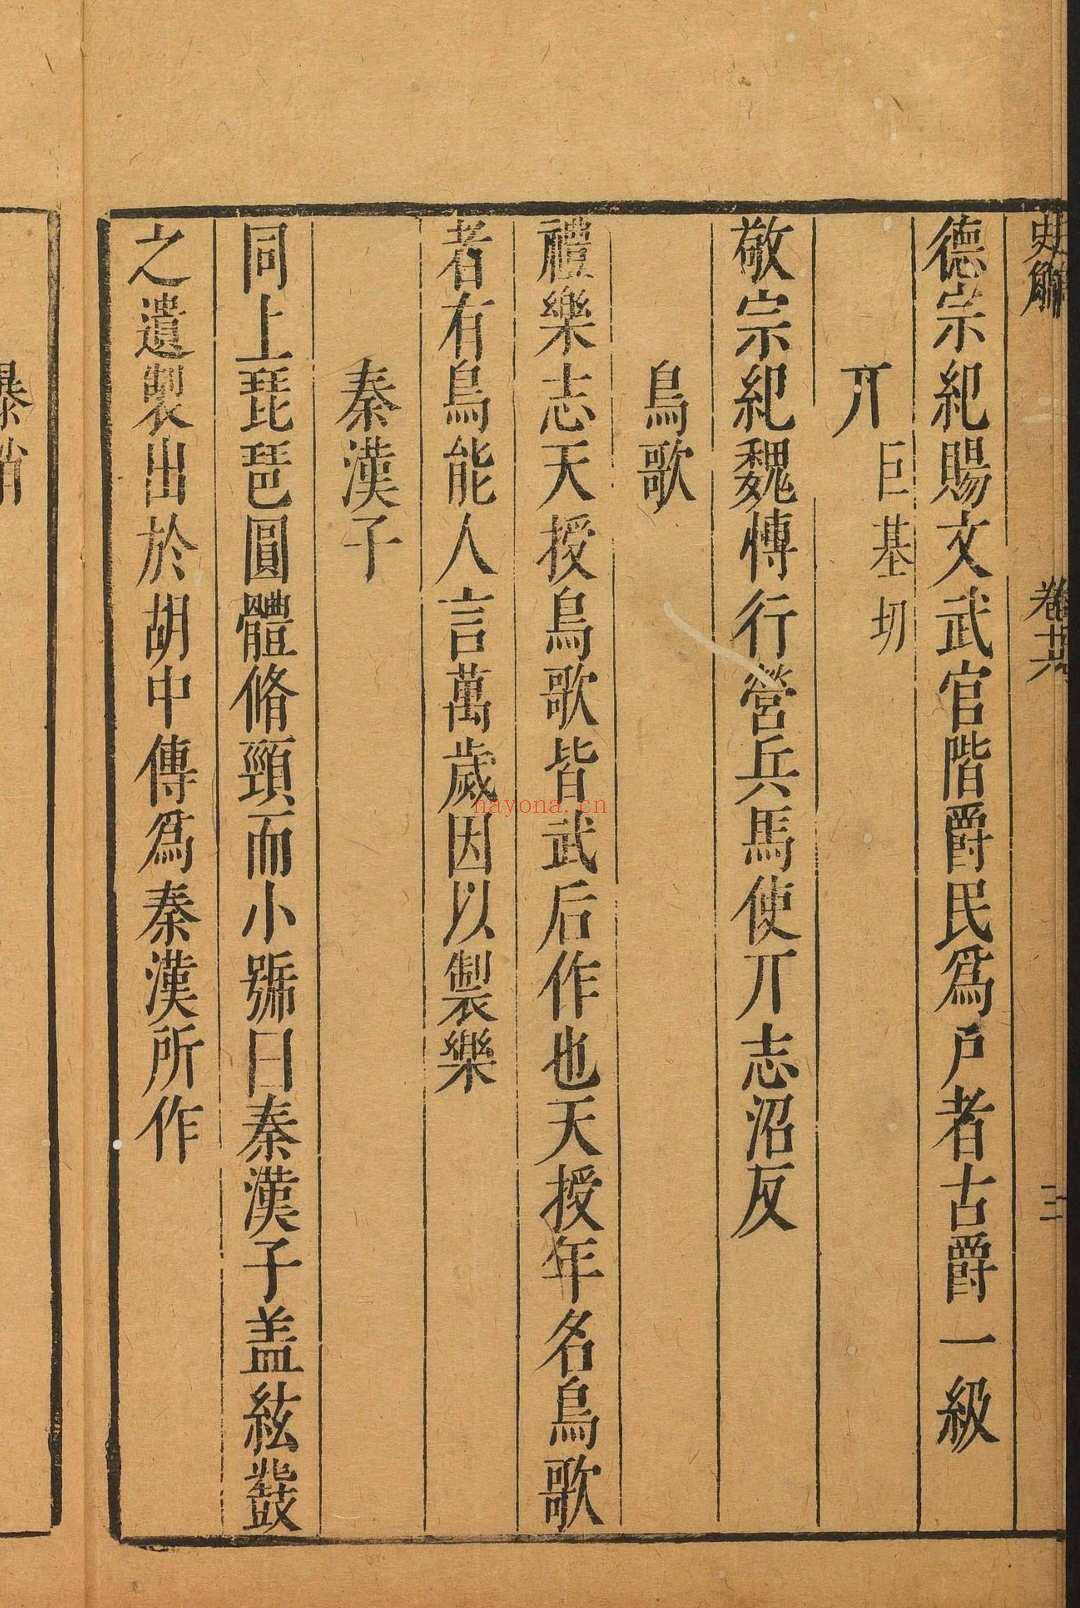 史觿 卷廿六 三
德宗紀賜文武官階爵民爲戶者古爵一級
丌巨基切
敬宗紀魏博行營兵馬使丌志沼反
鳥歌
禮樂志天授鳥歌皆武后作也天授年名鳥歌
者有鳥能人言萬歲因以製樂
秦漢子
同上琵琶圓體脩頸而小號曰秦漢子盖絃鼗
之遺製出於胡中傳爲秦漢所作
nayona.cn